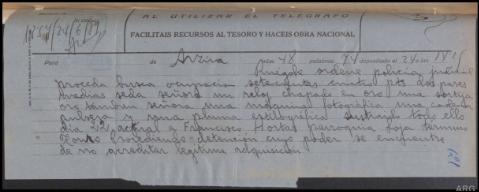 AL UTILIZAR EL TELEGRAFO
FACILITAIS RECURSOS AL TESORO Y HACEIS OBRA NACIONAL
Para de Arzua núm. 48 palabras 74 depositado el 24 a las
Ruegole ordene policia judicial
proceda busca ocupacion setecientas pts dos pares
medias seda señora un reloj chapado en oro una sortija
oro tambien señora una maquina fotográfica una cadena
pulsera y una pluma estilográfica sustraido todo ello
dia 22 actual a Francisco Hortas parroquia termino
detención cuyo poder se encuentre
de no acreditar legitima adquisicion
ARG